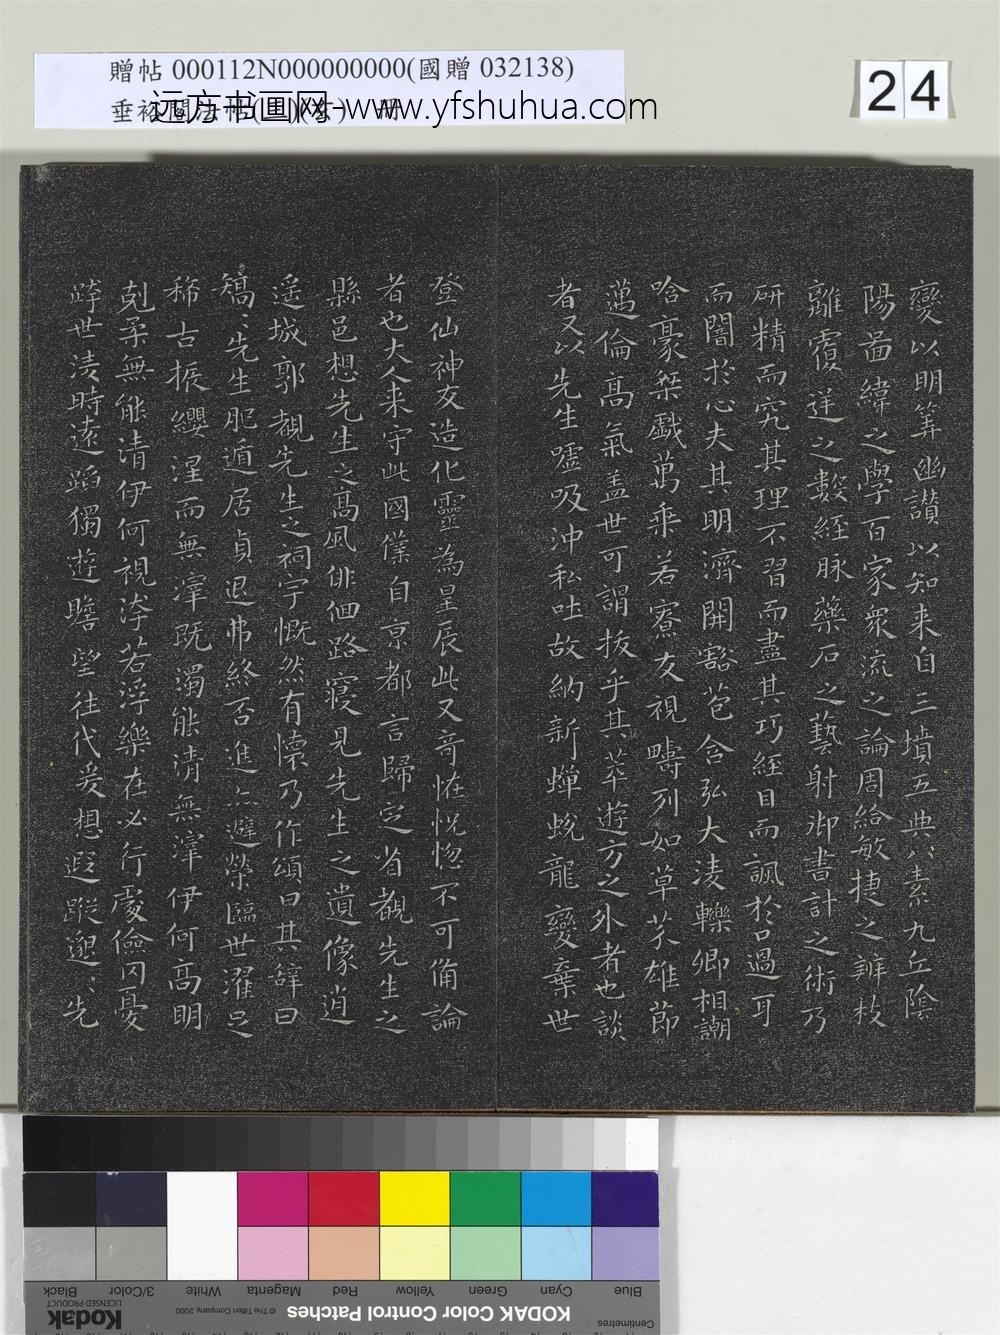 贈帖 000112N000000000(國贈 032138)
远方书画网 www.yfshuhua.com
24
變以明筭幽讃以知来自三墳五典八素九丘陰
陽啚緯之學百家衆流之論周給敏捷之辨枝
離覆逆之數經脉藥石之藝射御書計之術乃
研精而究其理不習而盡其巧經目而諷於口過耳
而闇於心夫其明濟開豁苞含弘大淩轢卿相謿
哈豪桀戯萬乗若寮友視疇列如草芥雄節
邁倫髙氣盖世可謂拔乎其萃遊方之外者也談
者又以先生嘘吸沖和吐故納新蟬蛻龍變棄世
登仙神友造化靈為星辰此又竒恠恍惚不可俻論
者也大人来守此國僕自京都言歸定省覩先生之
縣邑想先生之髙風俳佪路寢見先生之遺像逍
遥城郭覩先生之祠宇慨然有懷乃作頌曰其辤曰
矯〻先生肥遁居貞退弗終否進亦避榮臨世濯足
稀古振纓涅而無滓既濁能清無滓伊何髙明
剋柔無能清伊何視汙若浮樂在必行處儉罔憂
跨世淩時遠蹈獨遊瞻望往代爰想遐蹤邈〻先
Blue
Cyan
Green
Yellow
Red
Magenta
White
3/Color
Black
KODAK Color Control Patches
© The Tiffen Company, 2000
Kodak
LICENSED PRODUCT
Centimetres